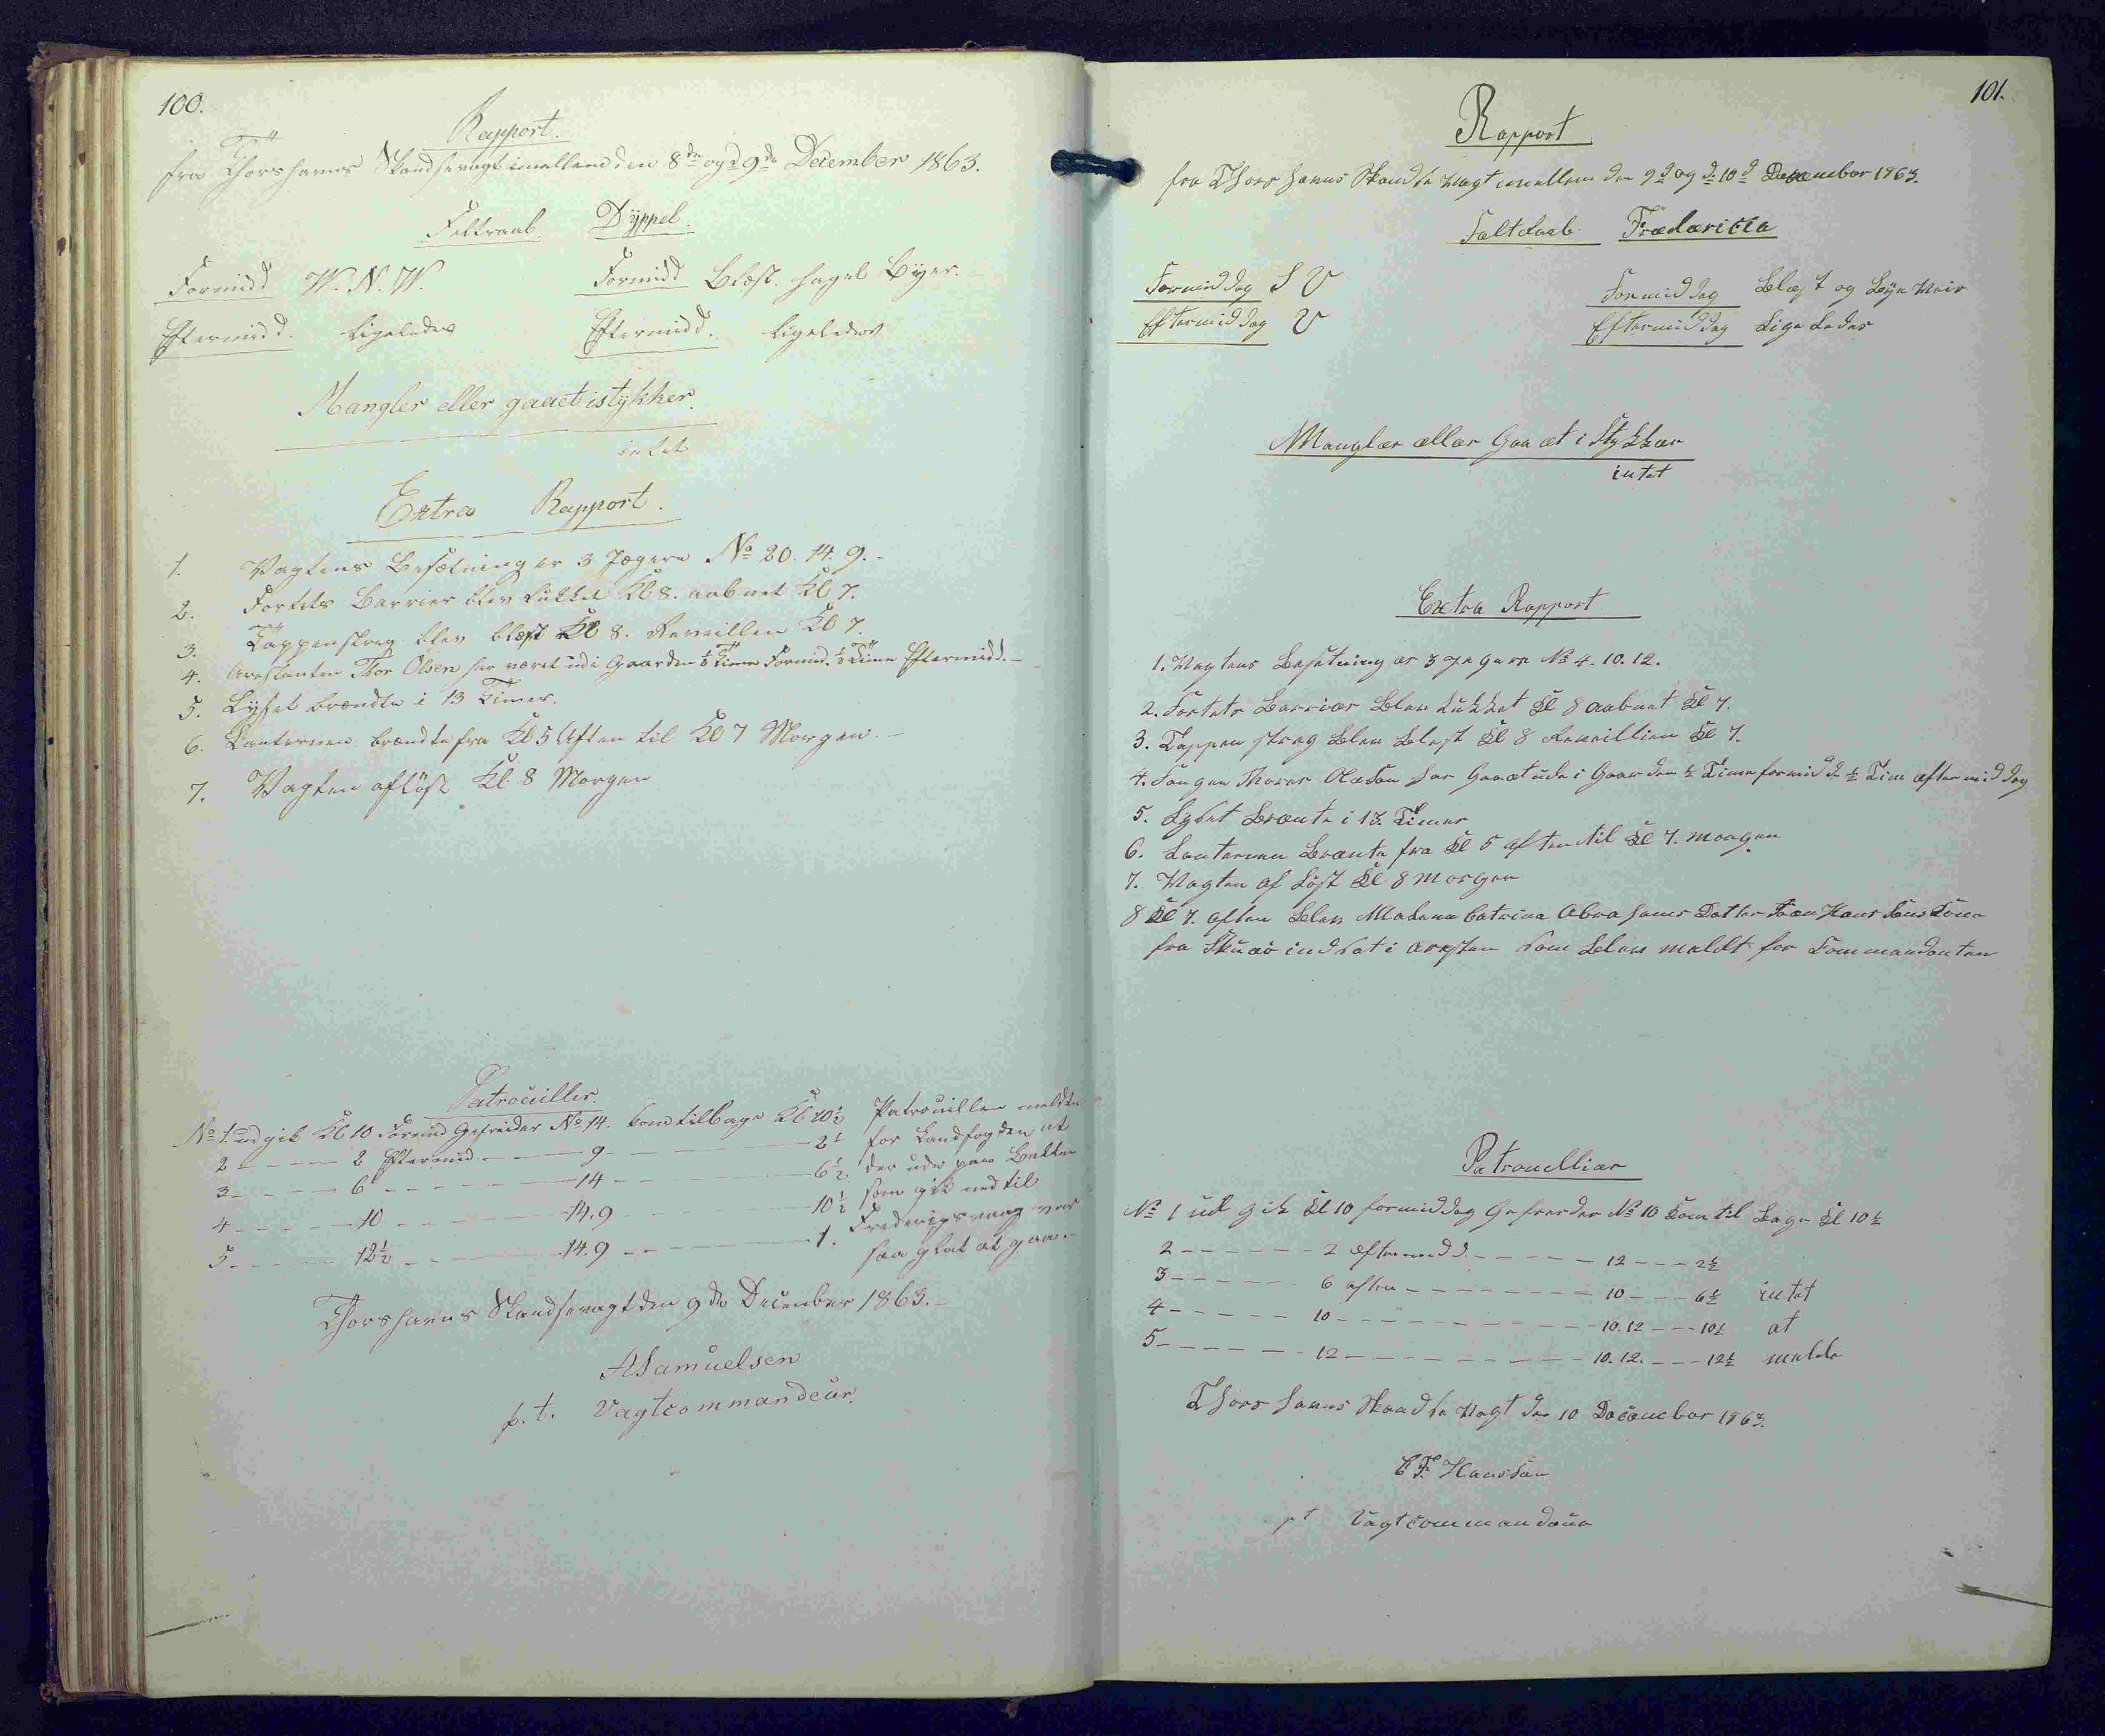 100.
Rapport.
fra Thorshavns Skandsevagt imellem den 8de og d 9de December 1863.
Feltraab. Dÿppel.
Formidd W. N. W. Formidd Blæst. hagel Bÿer.
Eftermidd. ligeledes Eftermidd. ligeledes
Mangler eller gaaet istykker.
intet
Extra Rapport.
1. Vagtens Besætning er 3 Jægere No 20. 14. 9.
2. Fortets Barrier blev lukket Kl 8. aabnet Kl 7.
3. Tappenstreg blev blæst Kl 8. Reveillen Kl 7.
4. Arrestanten Thor Olsen har været ud i Gaarden ½ Time Formid. ½ Time Eftermidd.
5. Lyset brændte i 13 Timer.
6. Lanternen brændte fra Kl 5 Aften til Kl 7 Morgen.
7. Vagten aflöst Kl. 8 Morgen
Patrouiller.
No 1. udgik Kl 10 Formid Gefreider No 14. kom tilbage Kl 10½ Patrouillen meldte
2 - - - - 2 Eftermid - - - 9 - - - 2½ for Landfogden at
3 - - - - 6 - - - - 14 - - - 6½ der ude paa
4 - - - - 10 - - - - 14. 9 - - - 10½ som gik ned til
5 - - - - 12½ - - - 14. 9 - - - 1. Frederigsvaag var
saa glat at gaa.
Thorshavns Skandsevagt den 9de December 1863.
ASamuelsen
p. t. Vagtcommandeur.
101.
Rapport
fra Thorshavns Skandse Vagt imellem den 9d og d 10d December 1863.
Feltraab. Fredericia
Formiddag S V Formiddag Blæst og Bÿe Veir
Eftermiddag V Eftermiddag Lige Ledes
Mangler eller Gaaet i Stykker
intet
Extra Rapport
1. Vagtens Besetning er 3 Jegere No 4. 10. 12.
2. Fortets Barrier Blev Lukket Kl 8 aabnet Kl 7.
3. Tappenstreg Blev Blest Kl 8 Reveillien Kl 7.
4. Fangen Thorer Olesen har Gaaet ude i Gaarden ½ Time formidd ½ Time eftermiddag
5. Lyset Brente i 13. Timer
6. Lanternen Brente fra Kl 5 aften til Kl 7. morgen
7. Vagten af Löst Kl 8 Morgen
8 Kl 7. aften Blev Malena Catrina Abrahams Datter Hans Sens Kone
fra Skuöe indsat i aresten som Blev meldt for Commandanten
Patrouellier
No 1 ud gik Kl 10 formiddag Gefreeder No 10 Kom til Bage Kl 10½
2 - - - - 2 eftermidd. - - - - 12 - - - 2½
3 - - - - 6 aften - - - - 10 - - - 6½ intet
4 - - - - 10 - - - - 10. 12 - - - 10½ at
5 - - - - 12 - - - - 10. 12. - - - 12½ melde
Thorshavns Skandse Vagt den 10 December 1863.
C F Hansen
pt Vagtcommandeur